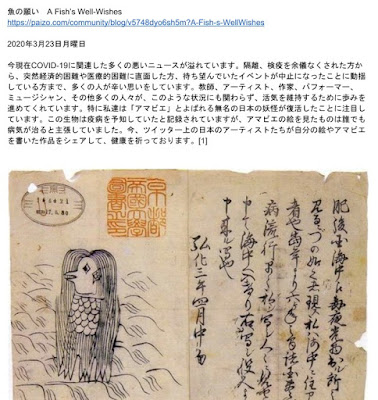 魚の願い　A Fish's Well-Wishes
https://paizo.com/community/blog/v5748dyo6sh5m?A-Fish-s-WellWishes
2020年3月23日月曜日
今現在COVID-19に関連した多くの悪いニュースが溢れています。隔離、検疫を余儀なくされた方か
ら、突然経済的困難や医療的困難に直面した方、待ち望んでいたイベントが中止になったことに動揺
している方まで、多くの人が辛い思いをしています。教師、アーティスト、作家、パフォーマー、
ミュージシャン、その他多くの人々が、このような状況にも関わらず、活気を維持するために歩みを
進めてくれています。特に私達は「アマビエ」とよばれる無名の日本の妖怪が復活したことに注目し
ています。この生物は疫病を予知していたと記録されていますが、アマビエの絵を見たものは誰でも
病気が治ると主張していました。今、ツイッター上の日本のアーティストたちが自分の絵やアマビエ
を書いた作品をシェアして、健康を祈っております。[1]
肥後国海中え毎夜光物出ル
申来ル写也
弘化三年四月中旬